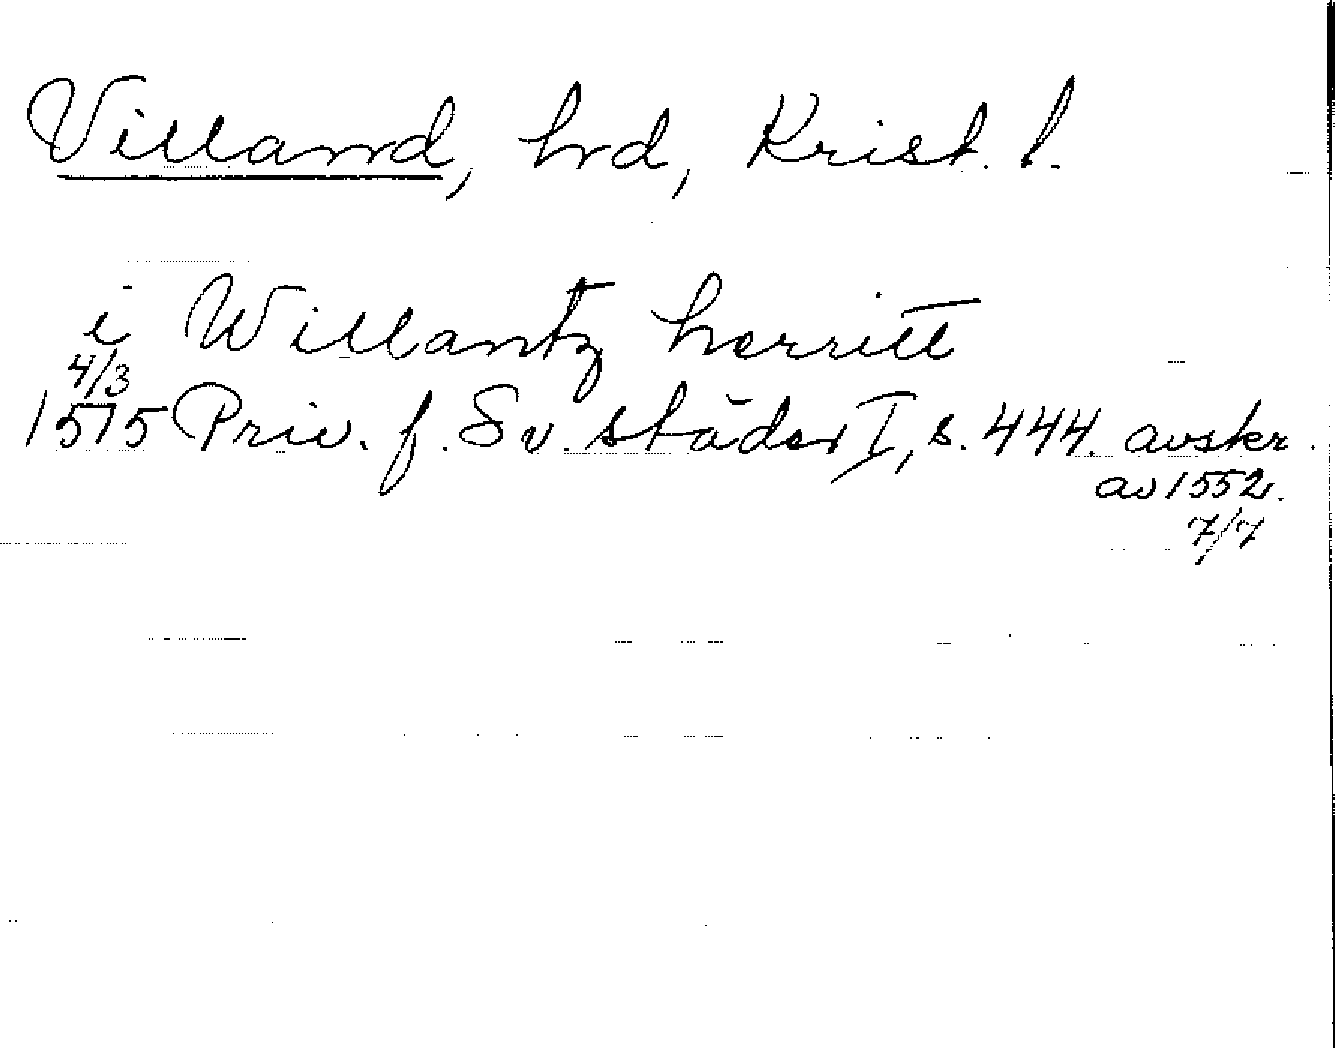 Villand, hrd, Krist. l.
i Willantz herritt
4/3
1575 Priv. f. Sv. städer I, s. 444. avskr.
av 1552.
7/7